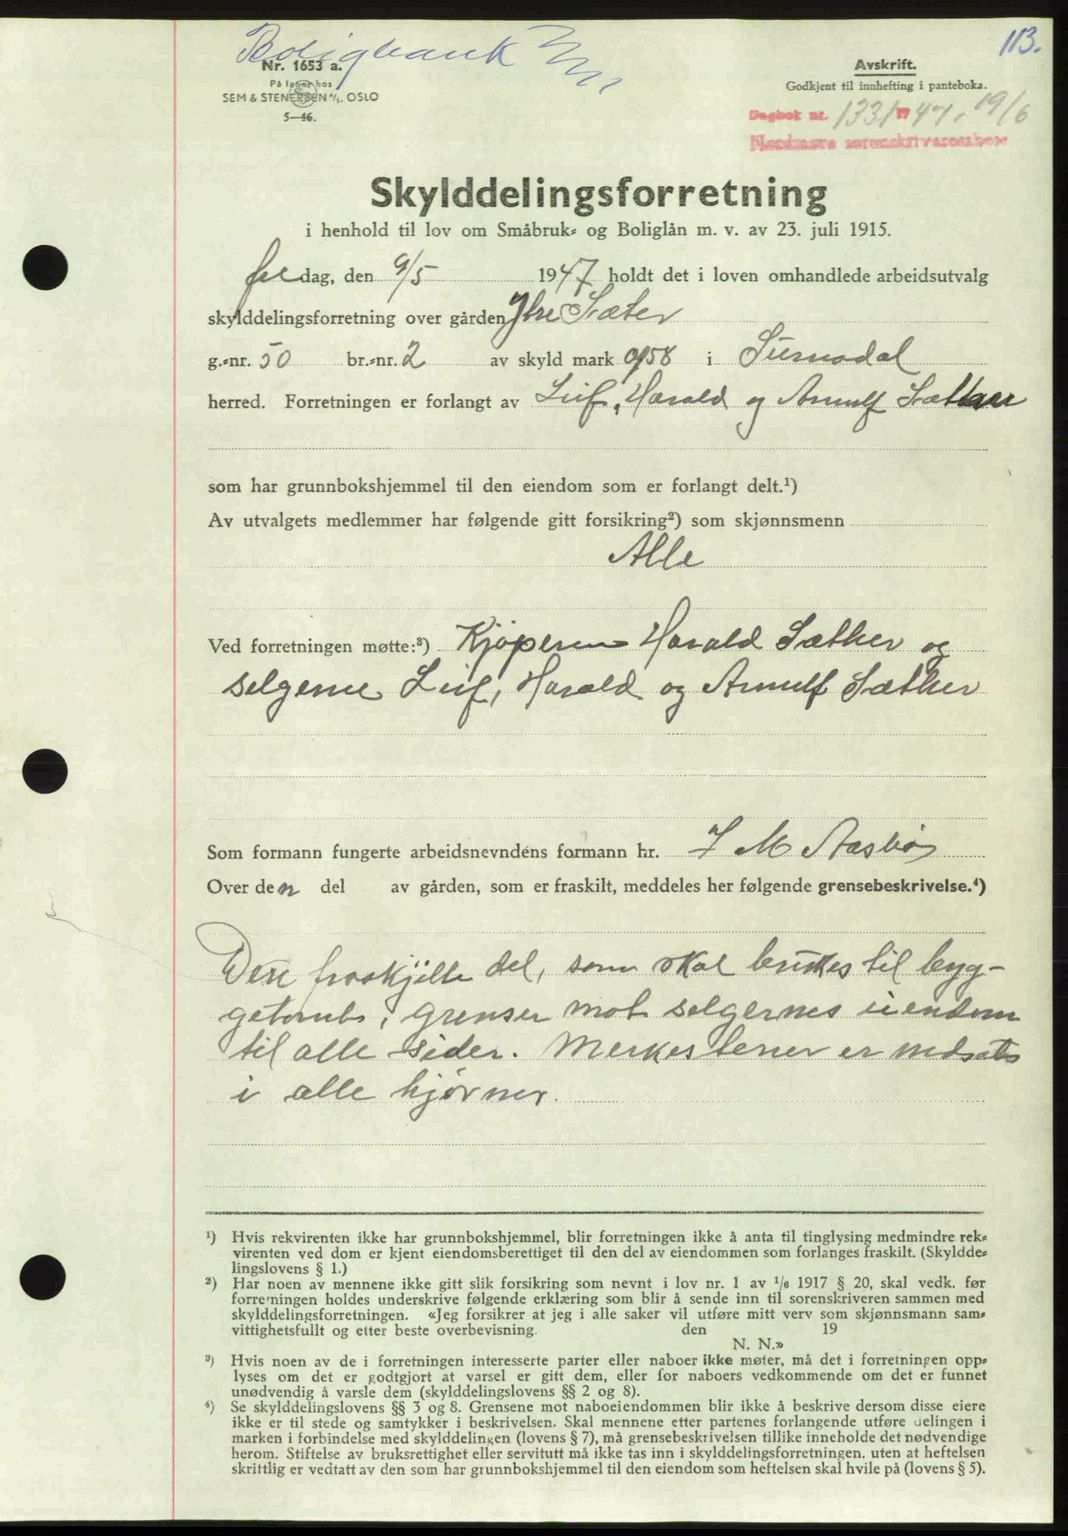 Boligbank
113.
Nr. 1653 a.
På lager hos
SEM & STENERSEN A/S. OSLO
5—46.
Avskrift.
Godkjent til innhefting i panteboka.
Dagbok nr. 1331 47, 19/6
Nordmøre sorenskriverembete
Skylddelingsforretning
i henhold til lov om Småbruk- og Boliglån m. v. av 23. juli 1915.
fredag, den 9/5 1947 holdt det i loven omhandlede arbeidsutvalg
skylddelingsforretning over gården Ytre Sæter
g.-nr. 50 br.-nr. 2 av skyld mark 0,58 i Surnadal
herred. Forretningen er forlangt av Leif, Harald og Arnulf Sæther
som har grunnbokshjemmel til den eiendom som er forlangt delt.¹)
Av utvalgets medlemmer har følgende gitt forsikring²) som skjønnsmenn
Alle
Ved forretningen møtte:³) Kjøperen Harald Sæther og
selgerne Leif, Harald og Arnulf Sæther
Som formann fungerte arbeidsnevndens formann hr. J M Aasbø
Over den del av gården, som er fraskilt, meddeles her følgende grensebeskrivelse.⁴)
Den fraskjilte del, som skal brukes til byg-
getomt, grenser mot selgernes eiendom
til alle sider. Merkestener er nedsatt
i alle hjørner.
¹) Hvis rekvirenten ikke har grunnbokshjemmel, blir forretningen ikke å anta til tinglysing medmindre rek-
virenten ved dom er kjent eiendomsberettiget til den del av eiendommen som forlanges fraskilt. (Skyldde-
lingslovens § 1.)
²) Har noen av mennene ikke gitt slik forsikring som nevnt i lov nr. 1 av 1/6 1917 § 20, skal vedk. før
forretningen holdes underskrive følgende erklæring som blir å sende inn til sorenskriveren sammen med
skylddelingsforretningen. «Jeg forsikrer at jeg i alle saker vil utføre mitt verv som skjønnsmann sam-
vittighetsfullt og etter beste overbevisning. den 19
N. N.»
³) Hvis noen av de i forretningen interesserte parter eller naboer ikke møter, må det i forretningen opp-
lyses om det er godtgjort at varsel er gitt dem, eller for naboers vedkommende om det er funnet
unødvendig å varsle dem (skylddelingslovens §§ 2 og 8).
⁴) Se skylddelingslovens §§ 3 og 8. Grensene mot naboeiendommen blir ikke å beskrive dersom disse eiere
ikke er til stede og samtykker i beskrivelsen. Skal mennene etter partenes forlangende utføre delingen i
marken i forbindelse med skylddelingen (lovens § 7), må grensebeskrivelsen tillike inneholde det nødvendige
herom. Stiftelse av bruksrettighet eller servitutt må ikke tas inn i skylddelingsforretningen, uten at heftelsen
skriftlig er vedtatt av den som har grunnbokshjemmel til den eiendom som heftelsen skal hvile på (lovens § 5).